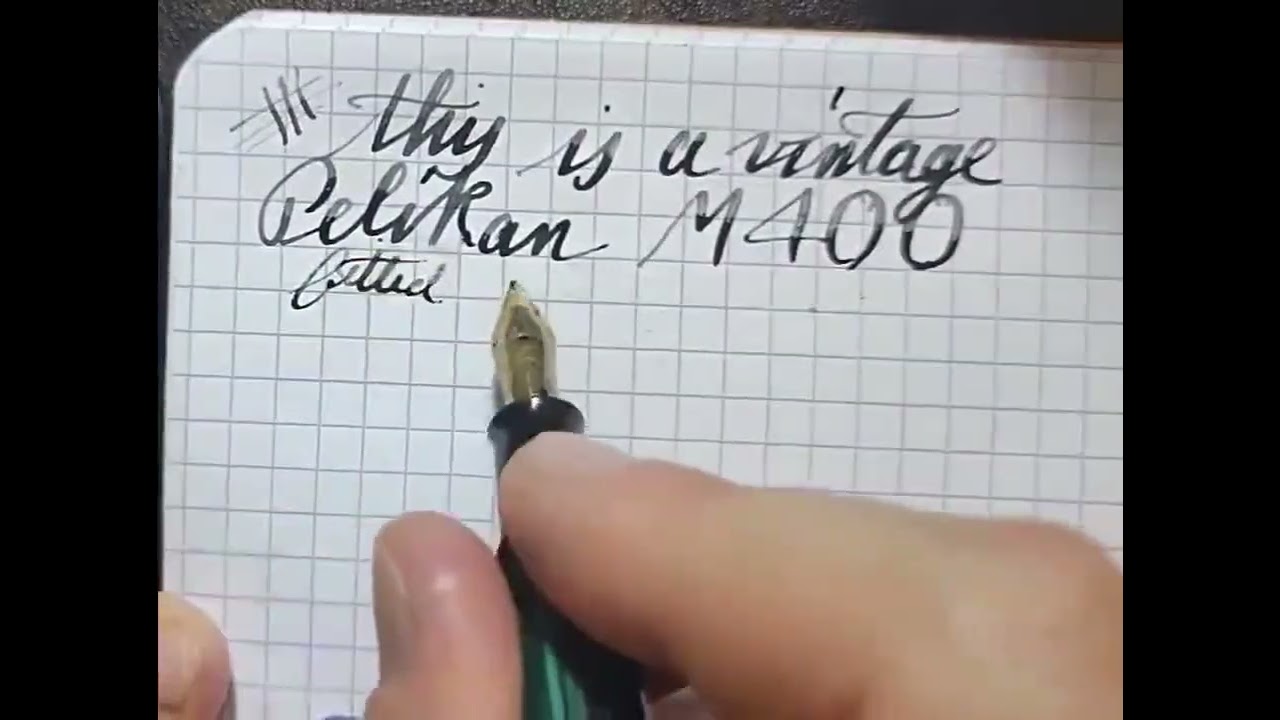 this is a vintage
Pelikan M400
fitted